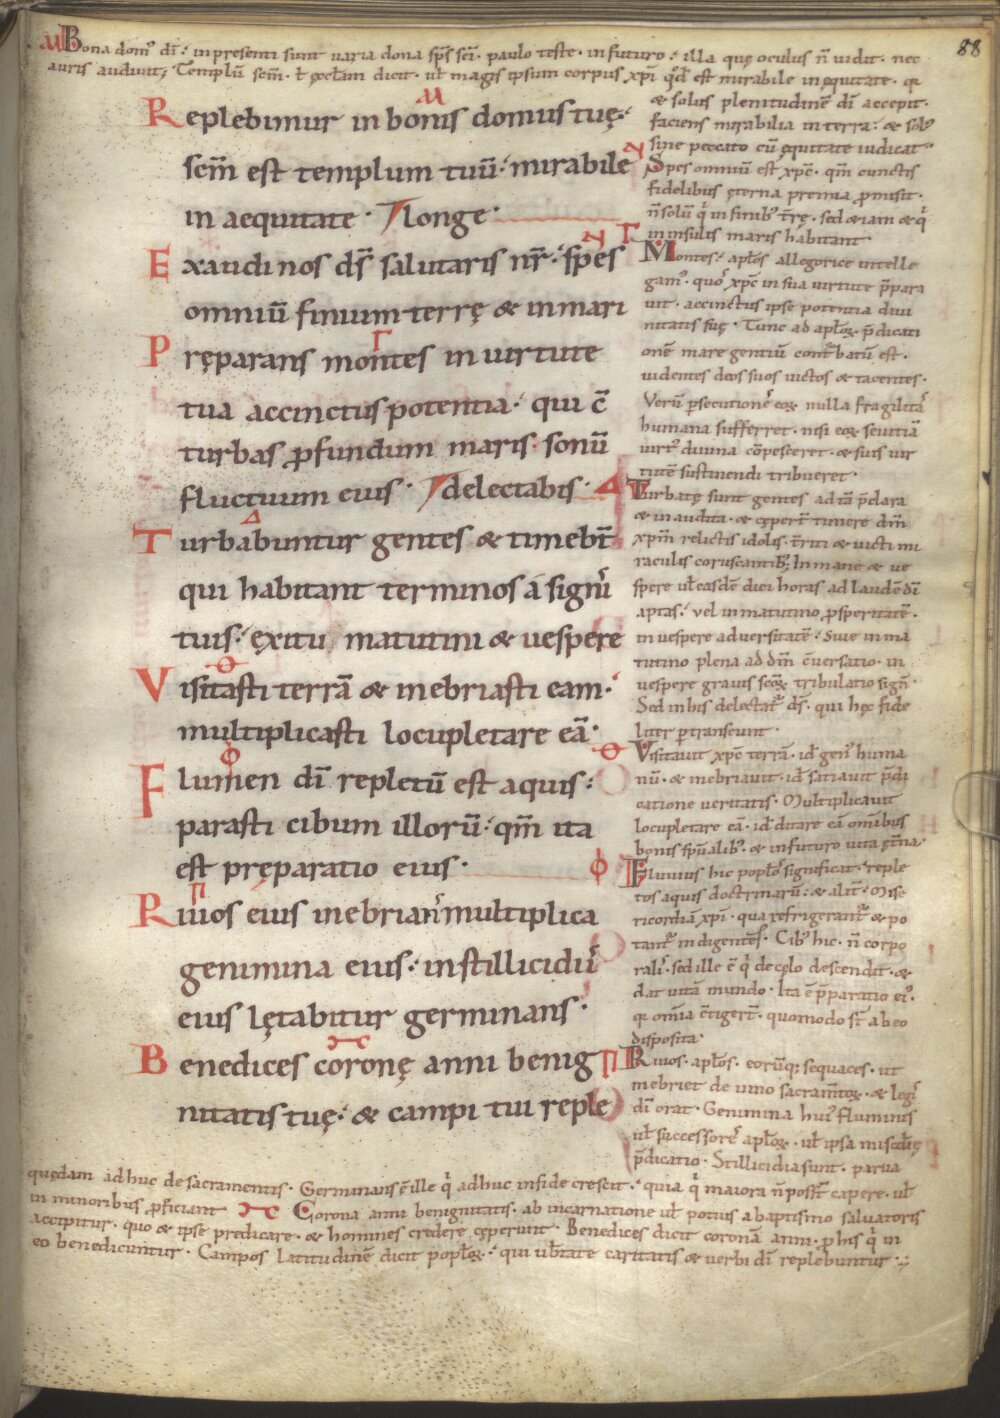 88
M Bona dom᷒ dī. in presenti sunt uaria dona sp̄s sc̄i. paulo teste. in futuro. illa quę oculus n̄ uidit. nec
auris audiuit; Templū scm̄. ł ęcclam dicit. uł magis ipsum corpus xp̄i qd̄ est mirabile in ęquitate. qi
& solus plenitudinē dī accepit.
faciens mirabilia in terra. & sol᷒
sine peccato cū ęquitate iudicat.
Replebimur in bonis domus tuę.
scm̄ est templum tuū. mirabile
in aequitate. longe.
Exaudi nos ds̄ salutaris nr̄. spes
omniū finium terrę & in mari
Pręparans montes in uirtute
tua accinctus potentia. qui c̄
turbas ꝓfundum maris. sonū
fluctuum eius. delectabis.
Turbabuntur gentes & timebt̄
qui habitant terminos a signi᷒
tuis. exitu matutini & uespere
Visitasti terrā & inebriasti eam.
multiplicasti locupletare eā.
Flumen dī repletū est aquis.
parasti cibum illorū. qm̄ ita
est pręparatio eius.
Riuos eius inebrian᷒ multiplica
genimina eius. in stillicidii᷒
eius lętabitur germinans.
Benedices coronę anni benig
nitatis tuę. & campi tui reple
N Spes omniū est xpc̄. qm̄ cunctis
fidelibus ęterna premia ꝓmisit.
n̄ solū q̇ in finib᷒ tr̄ę. sed & iam & q̇
in insulis maris habitant.
Γ Montes. apłos allegorice intelle
gam᷒. quo᷒ xpc̄ in sua uirtute p̄para
uit. accinctus ipse potentia diui
nitatis suę. Tunc ad apłoꝝ p̄dicati
onē mare gentiū cont᷒batū est.
uidentes deos suos uictos & tacentes.
Verū ꝑsecutionē eoꝝ nulla fragilita᷒
humana sufferret. nisi eoꝝ seuitiā
uirt᷒ diuina cōpesceret. & suis uir
tutē sustinendi tribueret.
Δ Turbatę sunt gentes ad tā p̄clara
& inaudita. & cępert̄ timere dnm̄
xpm̄ relictis idolis. tr̄iti & uicti mi
raculis coruscantib᷒; In mane & ue
spere uł easdē diei horas ad laudē dī
aptas. vel in matutino ꝓsperitatē.
in uespere aduersitatē. Siue in ma
tutino plena ad dm̄ c̄uersatio. in
uespere grauis scōꝝ tribulatio sign᷒.
Sed in his delectat᷒ ds̄. qui hęc fide
liter ꝑtranseunt.
Θ Visitauit xpc̄ terrā. id᷒ gen᷒ huma
nū. & inebriauit. id᷒ satiauit p̄di
catione ueritatis. Multiplicauit
locupletare eā. id᷒ ditare eā omībus
bonis spūalib᷒. & in futuro uita et̄na.
Φ Fluuius hic popłos significat. reple
tos aquis doctrinarū. & alit̄. Mise
ricordiā xp̄i. qua refrigerant᷒ & po
tant᷒ indigentes. Cib᷒ hic. n̄ corpo
ralis. sed ille ē q̇ de cęlo descendit. &
dat uitā mundo. Ita ē p̄paratio ei᷒.
qi om̄ia c̄tigert̄. quomodo st̄ ab eo
disposita.
Π Riuos. apłos. eorūq; sequaces. ut
inebriet de uino sacram̄toꝝ. & legi᷒
dī orat. Genimina hui᷒ fluminis
uł successores apłoꝝ. uł ipsa
p̄dicatio. Stillicidia sunt. parua
quędam adhuc de sacramentis. Germinans ē ille q̇ adhuc in fide crescit. quia q̇ maiora n̄ post̄ capere. uł
in minoribus ꝓficiant Corona anni benignitatis. ab incarnatione uł potius a baptismo saluatoris
accipitur. quo & ipse predicare. & homines credere cęperunt. Benedices dicit coronā anni. ꝓ his q̇ in
eo benedicuntur. Campos latitudinē dicit popłoꝝ. qui ub̄tate caritatis & uerbi dī replebuntur.